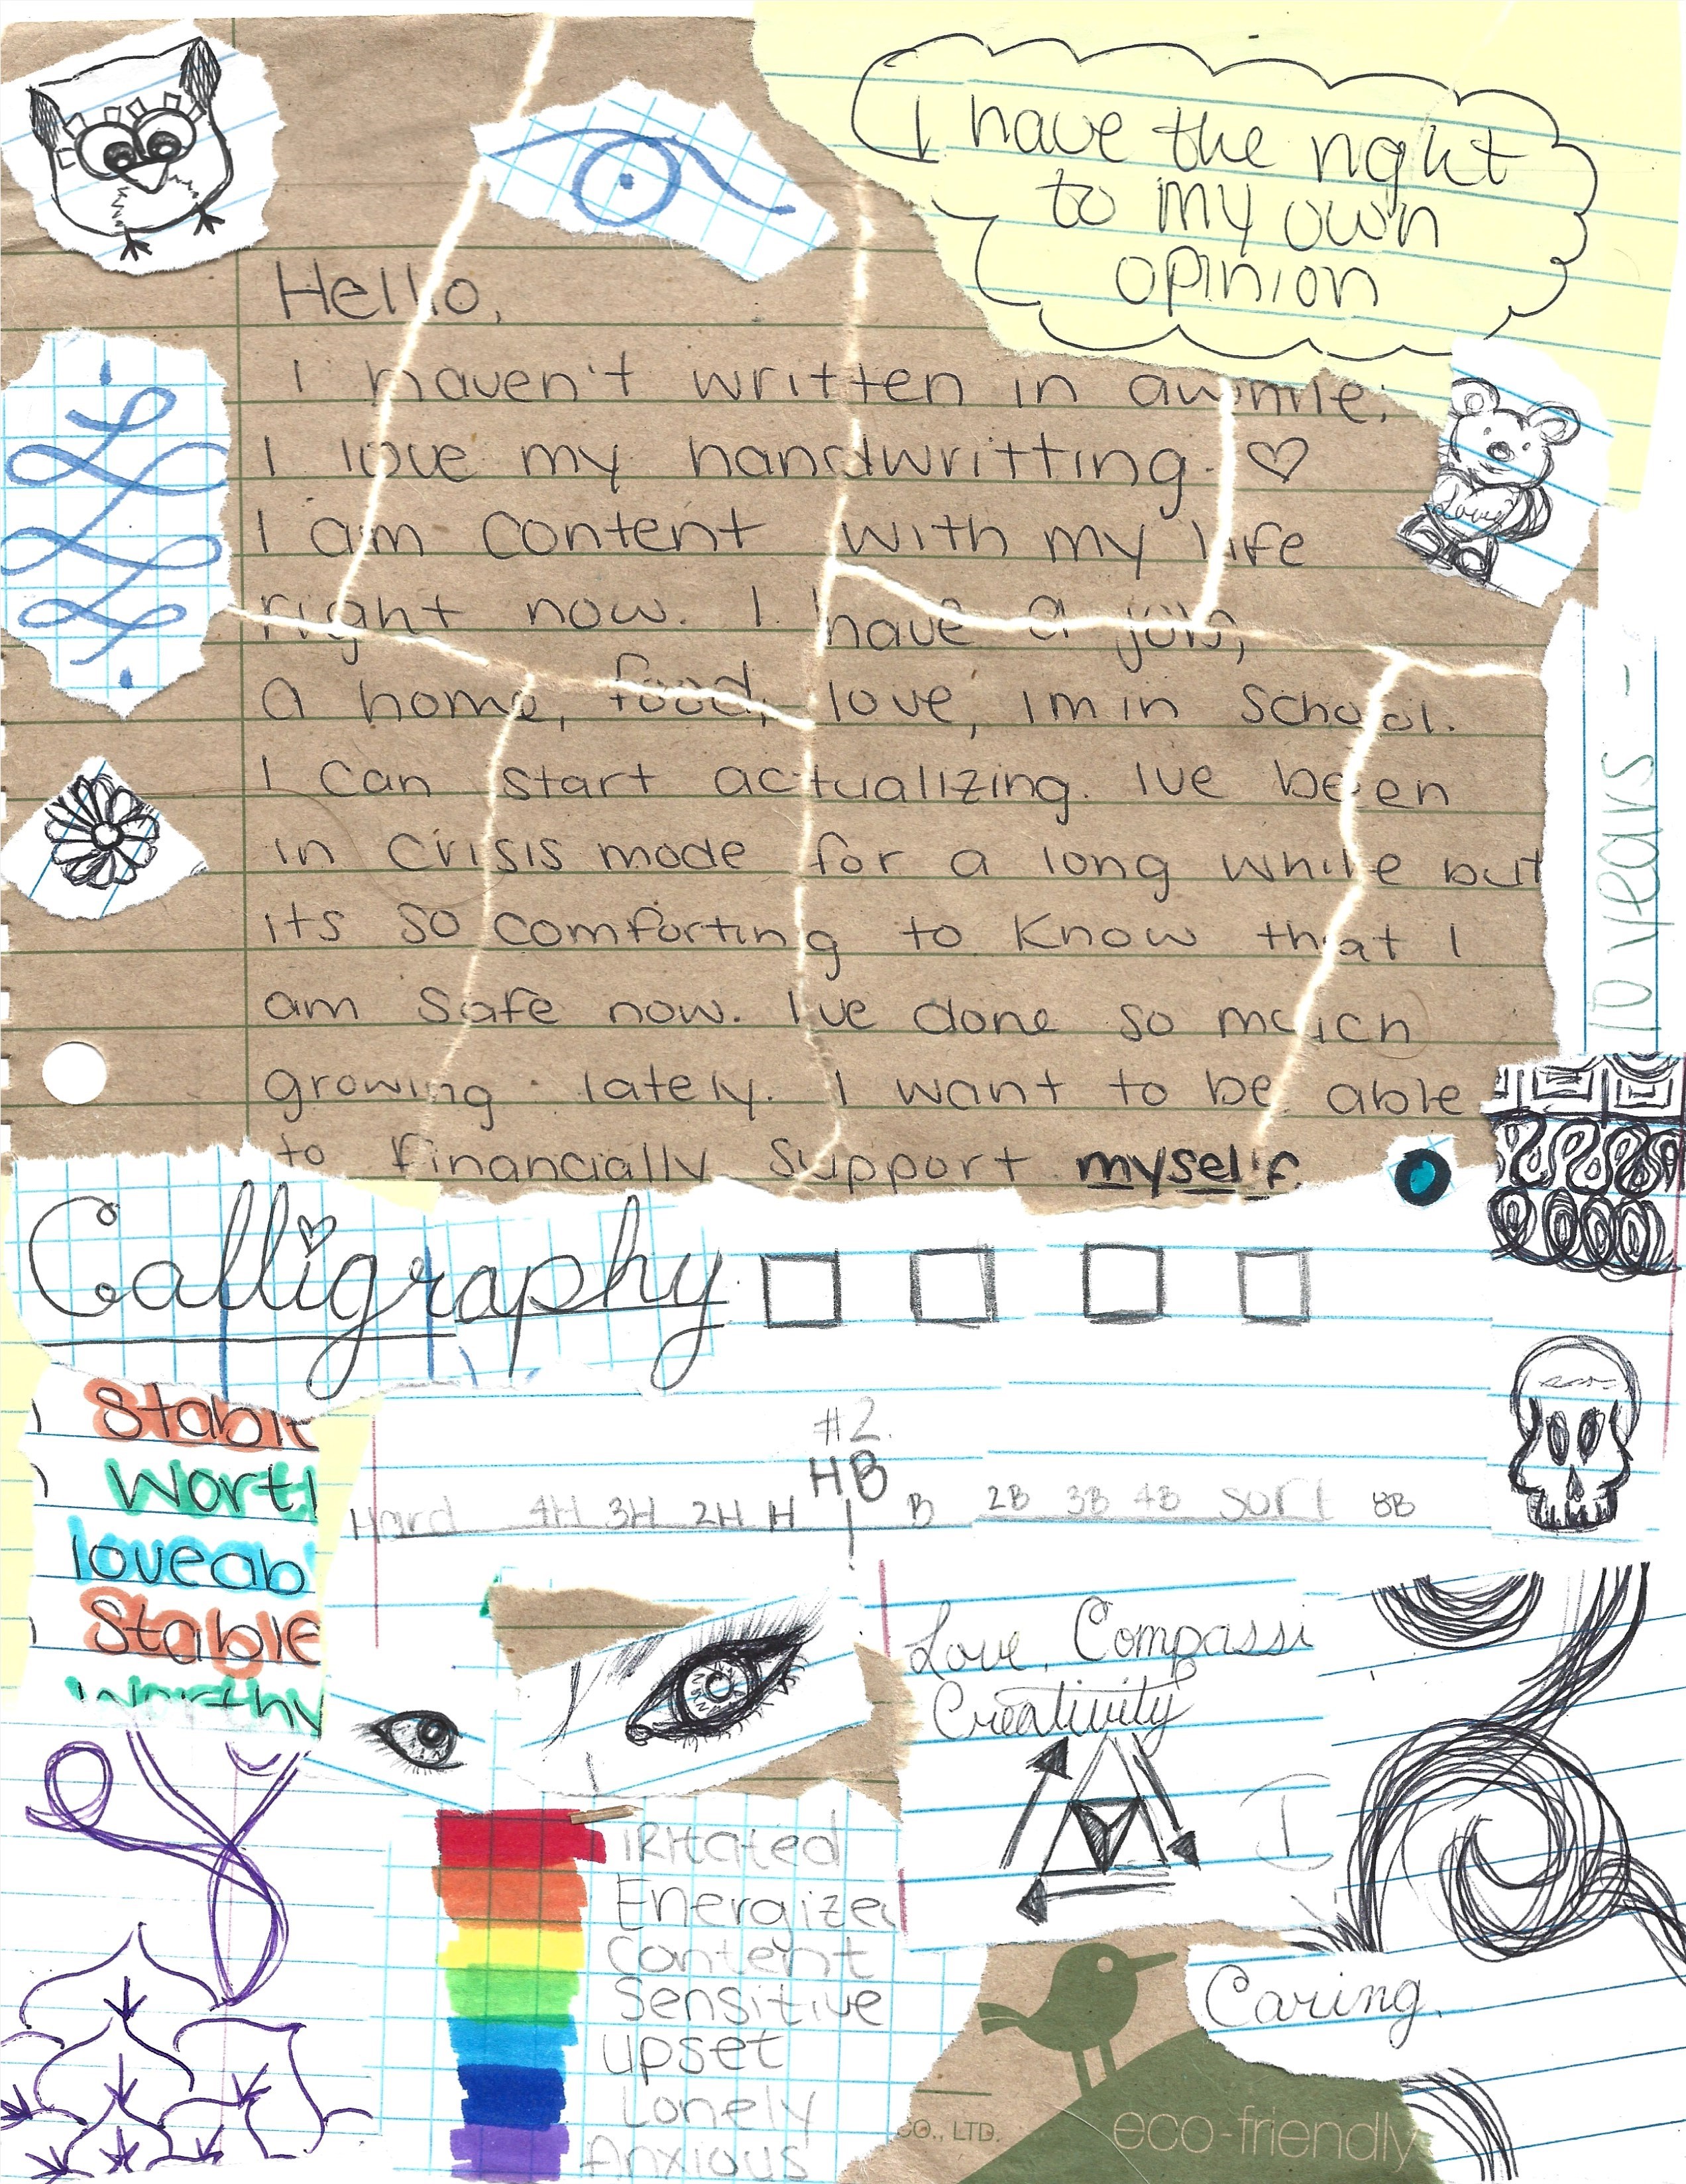 I have the right
to my own
opinion
Hello,
I haven't written in awhile.
I love my handwritting. ♡
I am content with my life
right now. I have a job,
a home, food, love, im in school.
I can start actualizing. Ive been
in crisis mode for a long while but
its so comforting to know that I
am safe now. I've done so much
growing lately. I want to be able
to financially support myself.
Love
10 years -
Calligraphy
#2.
HB
Hard 4H 3H 2H H B 2B 3B 4B 8B
Stable
Worth
loveab
Stable
Worthy
Love, Compassi
Creativity
I
IRitated
Energize
Content
Sensitive
upset
Lonely
Anxious
Caring.
CO., LTD.
eco-friendly